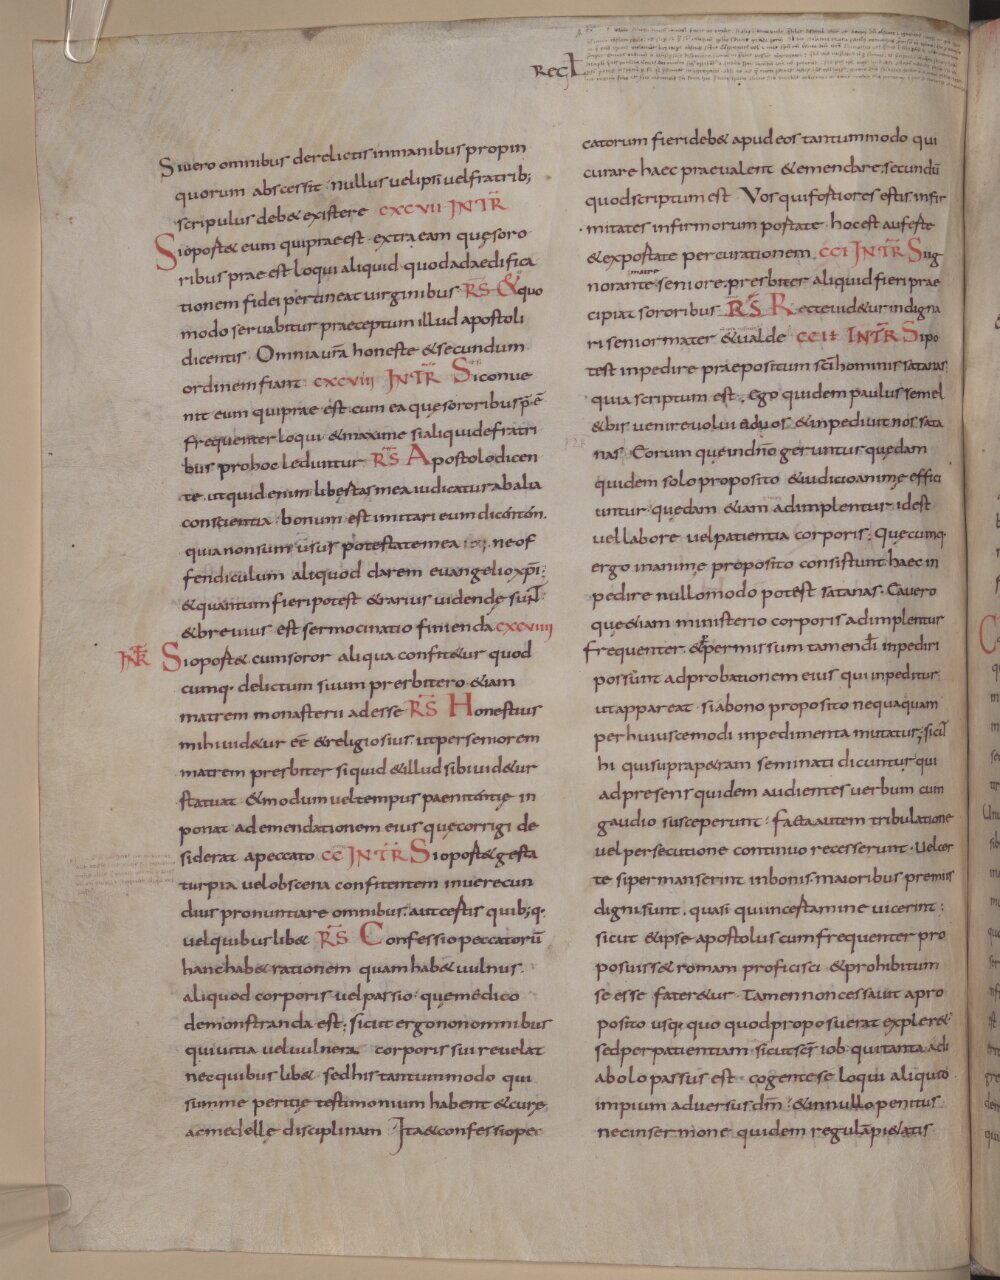 REG̅
Si uero omnibus derelictis inmanibus propin
quorum abscessit · nullus uel ipsi uel fratrib;
scripulus deb& existere CXCVII INTR̅
Si oport& eum qui prae est · extra eam quę soro
ribus prae est loqui aliquid quod ad aedifica
tionem fidei pertineat uirginibus R̅S̅ & quo
modo seruabitur praeceptum illud apostoli
dicentis · Omnia ur̅a honeste & secundum
ordinem fiant CXCVIII INTR̅ Si conue
nit eum qui prae est cum ea quę sororibus p̅ ē
frequenter loqui & maxime si aliqui de fratri
bus pro hoc leduntur R̅S̅ Apostolo dicen
te ut quid enim libertas mea iudicatur ab alia
conscientia · bonum est imitari eum dicentem
quia non sum usus potestate mea · ne of
fendiculum aliquod darem euangelio xp̅i ;
& quantum fieri potest & rarius uidendę sunt
& breuius est sermocinatio finienda CXCVIIII
INTR̅ Si oport& cum soror aliqua confit&ur quod
cumq· delictum suum presbitero · &iam
matrem monasterii adesse R̅S̅ Honestius
mihi uid&ur eē & religiosius · ut per seniorem
matrem presbiter si quid & illud sibi uid&ur
statuat · & modum uel tempus paenitentię in
ponat ad emendationem eius quę corrigi de
siderat a peccato CC INTR̅ Si oport& gesta
turpia uel obscena confitentem inuerecun
dius pronuntiare omnibus · aut certis quib;q·
uel quibus lib& R̅S̅ Confessio peccatorū
hanc hab& rationem quam hab& uulnus ·
aliquod corporis uel passio · quę medico
demonstranda est ; sicut ergo non omnibus
qui uitia uel uulnera corporis sui reuelat
nec quibus lib& · sed his tantummodo qui
summe peritię testimonium habent & curę
ac medellę disciplinam Ita & confessio pec
catorum fieri deb& apud eos tantummodo qui
curare haec praeualent & emendare ; secundū
quod scriptum est Vos qui fortiores estis infir
mitates infirmorum portate · hoc est auferte
& exportate per curationem CCI INTR̅ Si ig
norante seniore matre presbiter aliquid fieri prae
cipiat sororibus R̅S̅ Recte uid&ur indigna
ri senior mater & ualde CCII INTR̅ Si po
test inpedire praepositum sc̅i hominis satanas
quia scriptum est · Ego quidem paulus semel
& bis uenire uolui ad uos & inpediuit nos sata
nas · Eorum quę in dn̅o geruntur quędam
quidem solo proposito & iudicio animę effici
untur · quędam &iam adimplentur id est
uel labore uel patientia corporis ; Quęcumq·
ergo in animę proposito consistunt haec in
pedire nullo modo potest satanas · Ca uero
que &iam ministerio corporis adimplentur
frequenter & permissum tamen dī inpediri
possunt ad probationem eius qui inpeditur
ut appareat · si a bono proposito nequaquam
per huiuscemodi inpedimenta mutatur ; sicut
hi qui supra p&ram seminati dicuntur qui
ad presens quidem audientes uerbum cum
gaudio susceperunt · facta autem tribulatione
uel persecutione continuo recesserunt · Uel cer
te si permanserint in bonis maioribus premiis
digni sunt · quasi qui in certamine uicerint :
sicut & ipse apostolus cum frequenter pro
posuiss& romam proficisci & prohibitum
se esse fater&ur · Tamen non cessauit a pro
posito usq· quo quod proposuerat expler&
sed per patientiam · sicut sc̅s iob · qui tanta a di
abolo passus est cogente se loqui aliquid
impium aduersus dm̅ · & in nullo penitus
nec in sermone quidem regulam pi&atis